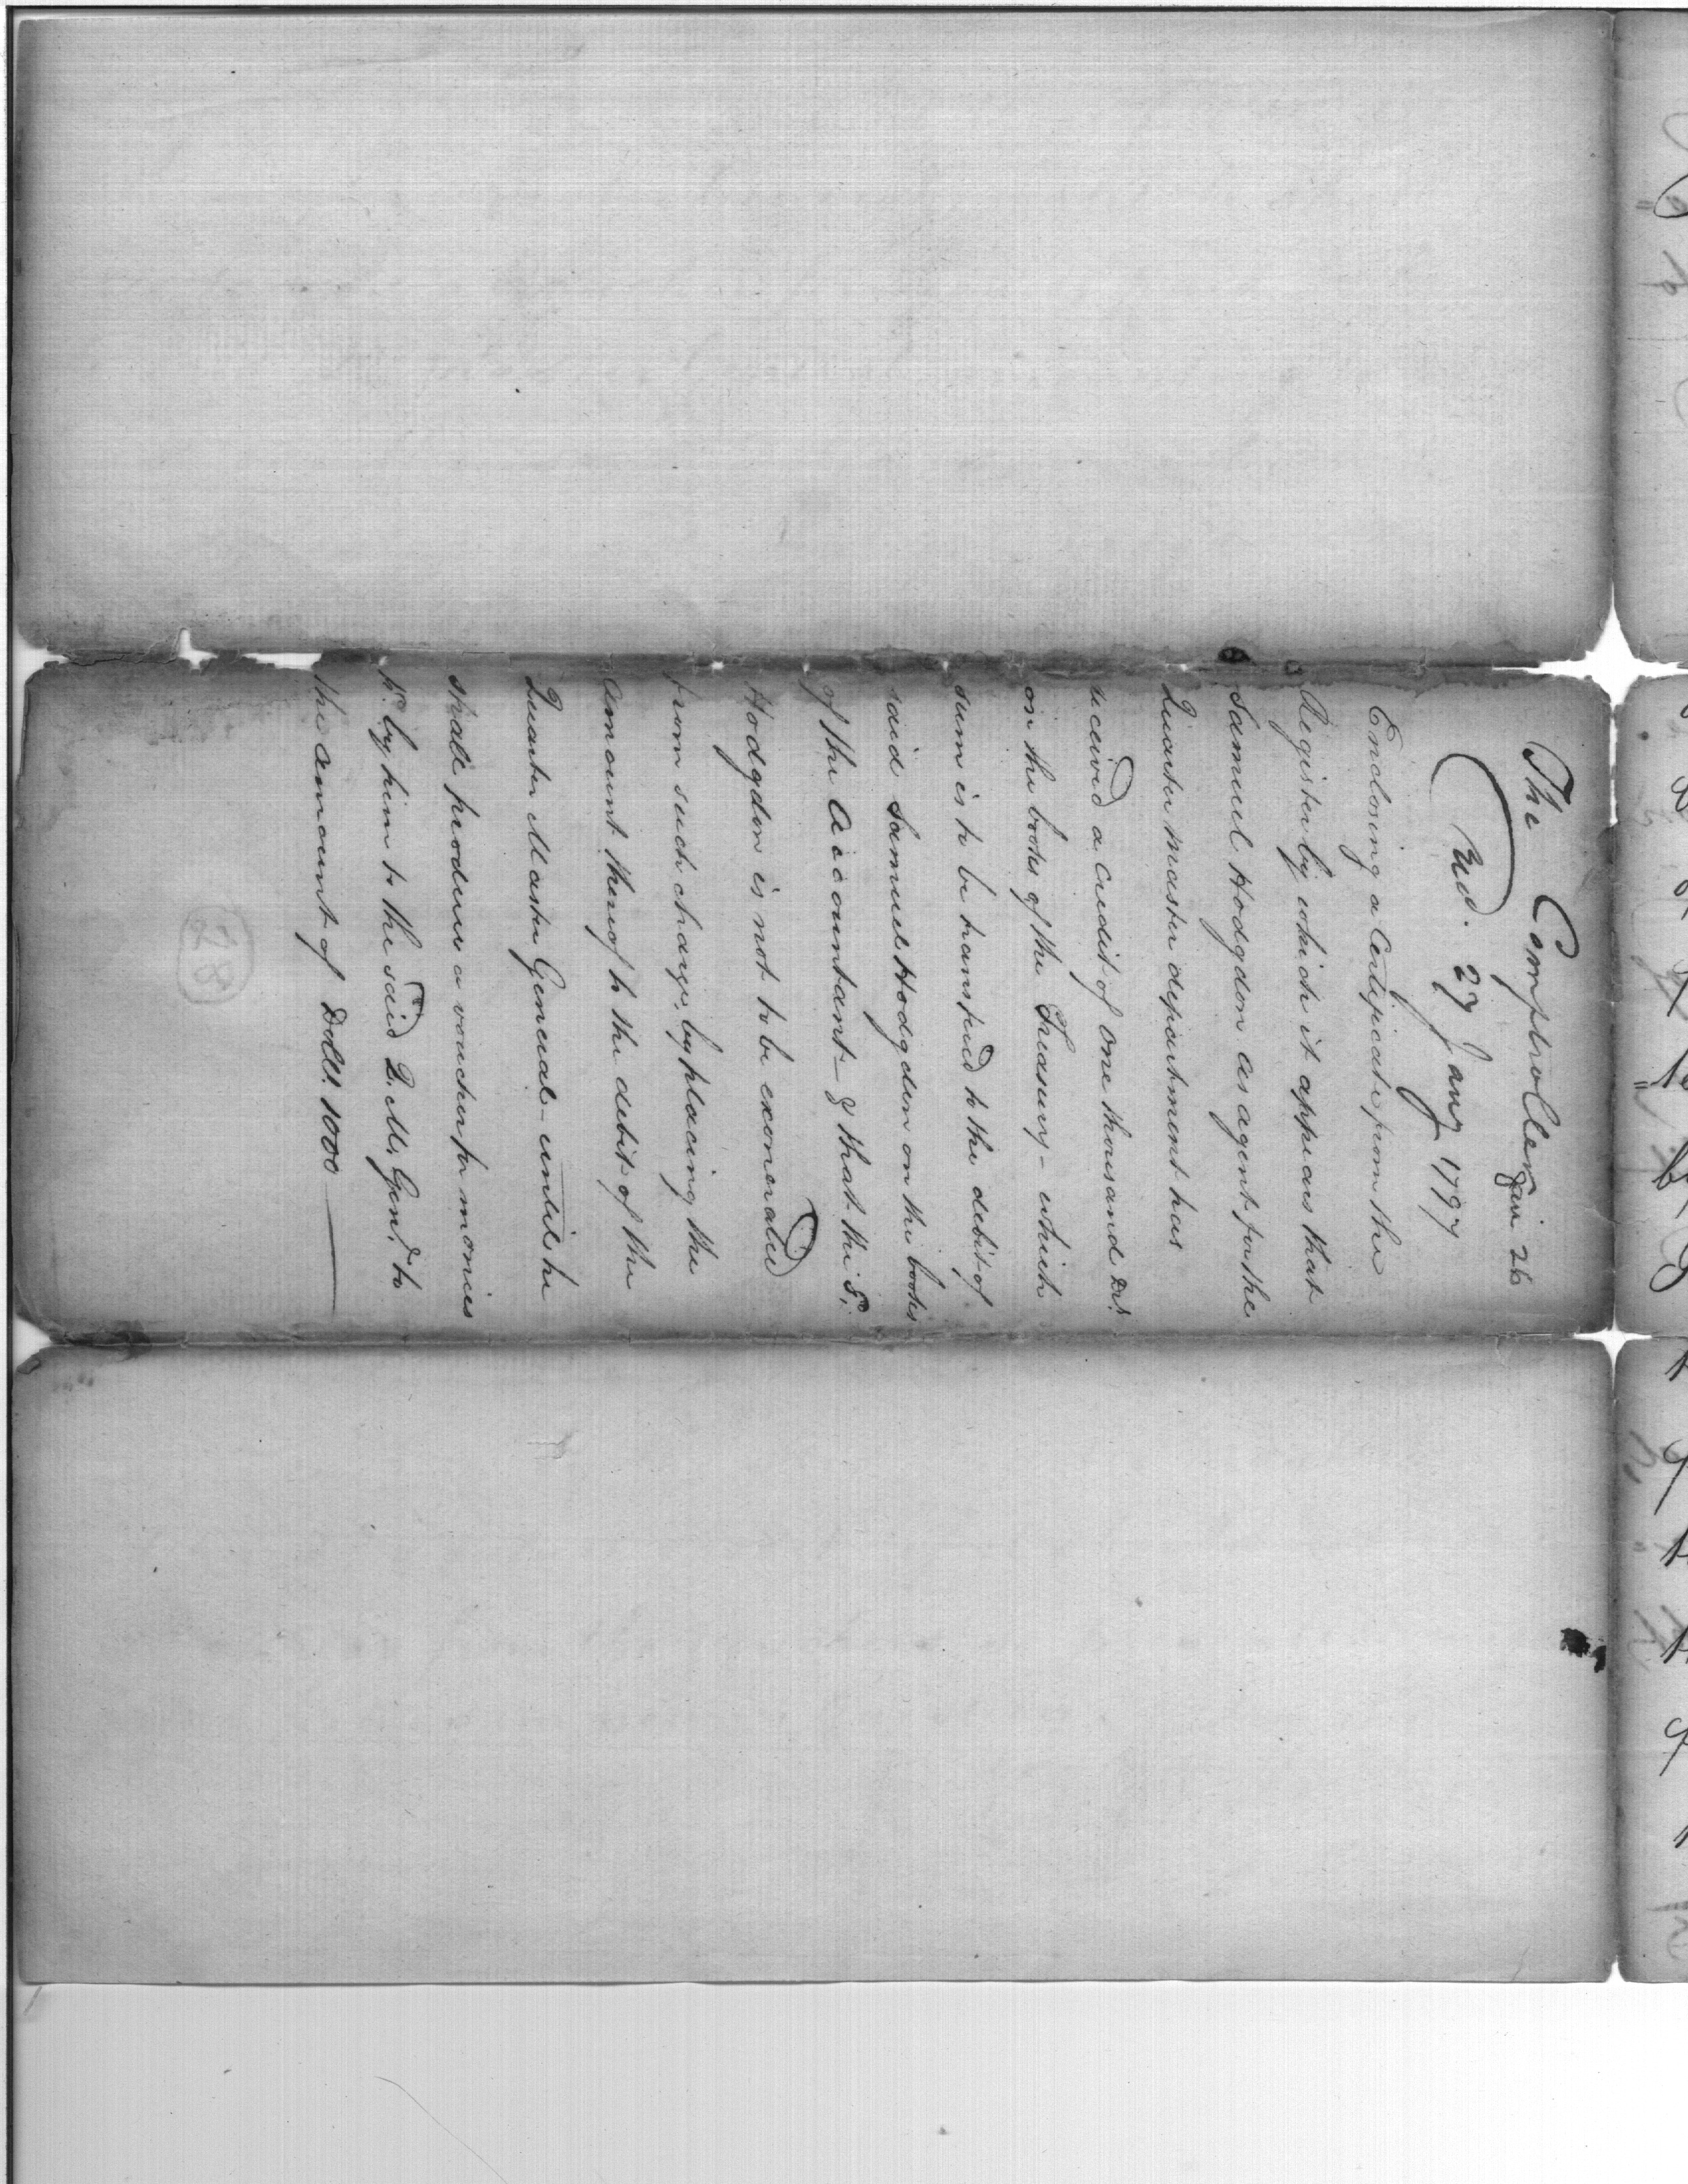 The Comptroller Jan. 26
Recd. 27 Jany 1797
Enclosing a Certificate from the
Register by which it appears that
Samuel Hodgdon as agent for the
Quarter Master department has
received a credit of one thousand Dols.
on the books of the Treasury - which
sum is to be transfered to the debit of
said Samuel Hodgdon on the books
of the Accountant - & that the S.
Hodgdon is not to be exonerated
from such charge, by placing the
amount thereof to the debit of the
Quarter Master General - until he
shall produce a voucher for monies
pd. by him to the said Q. M. Genl. to
the amount of Dolls. 1000